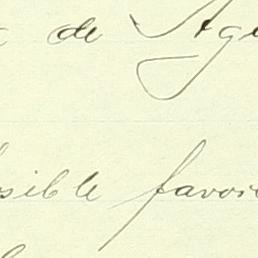 de Ag
sible favor